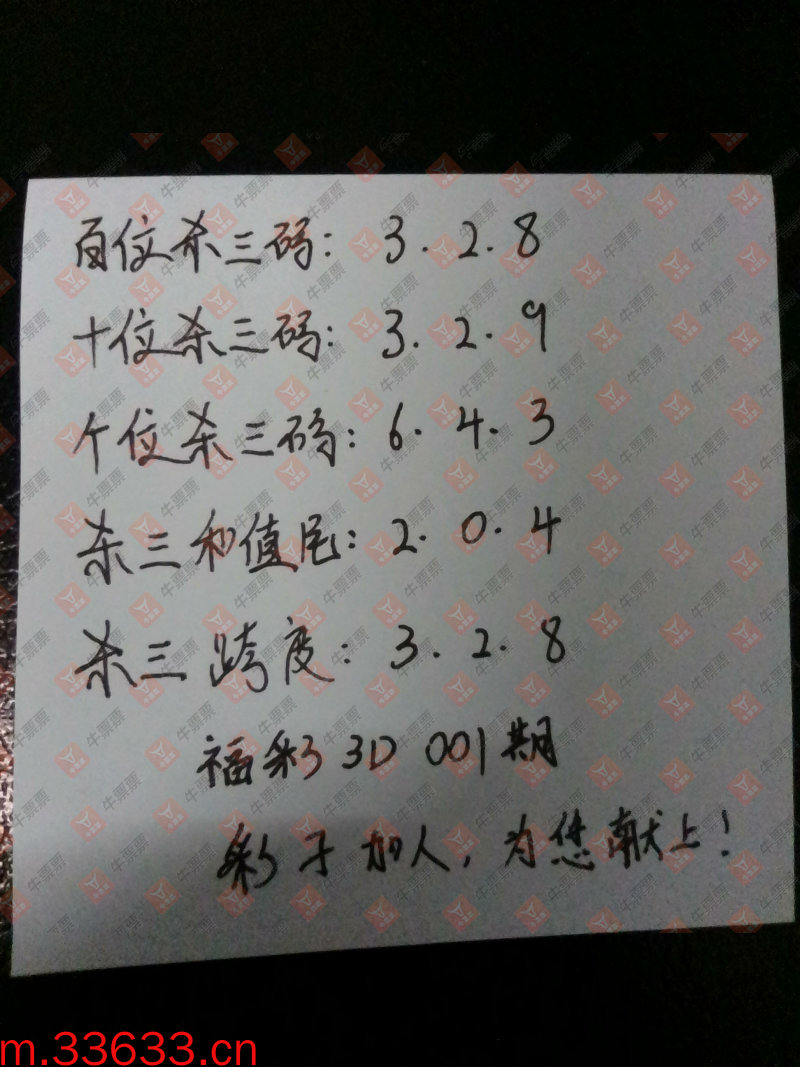 百位杀三码: 3.2.8
十位杀三码: 3.2.9
个位杀三码: 6.4.3
杀三和值尾: 2.0.4
杀三跨度: 3.2.8
福彩3D 001期
彩子加人，为您献上！
牛票票
m.33633.cn